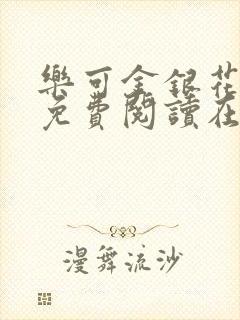 樂可金銀花
免費閱讀在
漫舞流沙